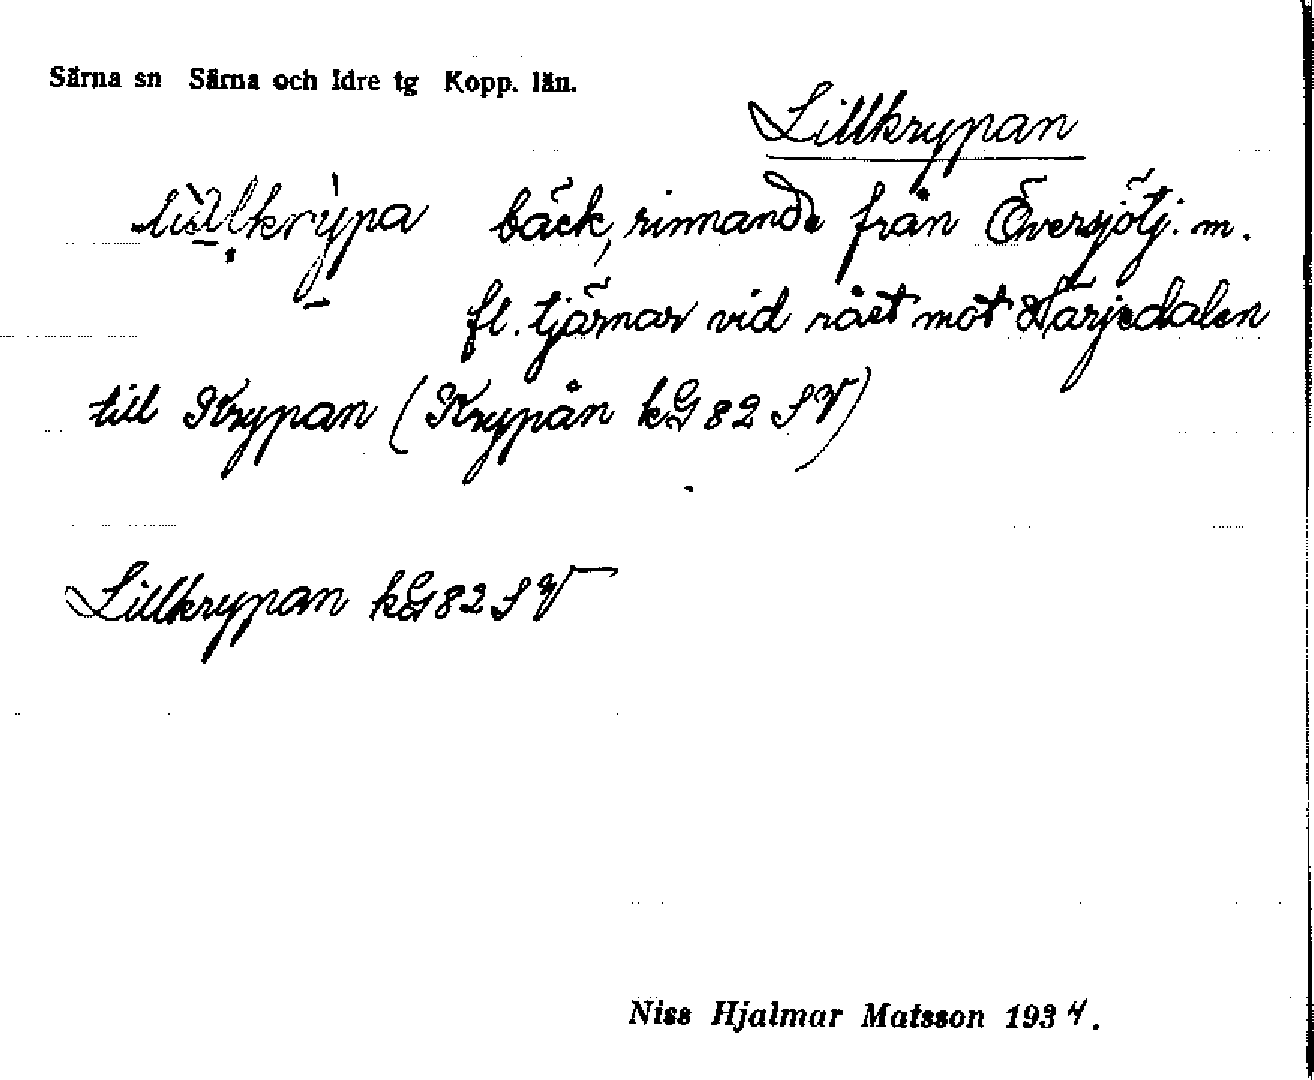 Särna sn Särna och Idre tg Kopp. län.
Lillkrypan
bäck, rinnande från Översjötj. m.
fl. tjärnar vid rået mot Härjedalen
till Krypan (Krypån kG 82 SV)
Lillkrypan kG 82 SV
Niss Hjalmar Matsson 1934.